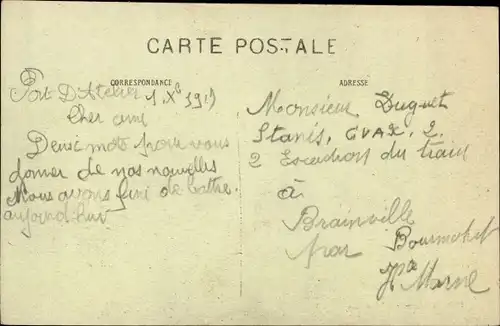 CARTE POSTALE
CORRESPONDANCE
ADRESSE
Port D'Atelier 1. Xe 39
Cher ami
Deux mots pour vous
donner de nos nouvelles
Nous avons fini de battre.
aujourd hui
Monsieur Duguet
Stanis, CVAX, 2.
2 Escadron du train
à
Brainville
par Bourmont
Hte Marne